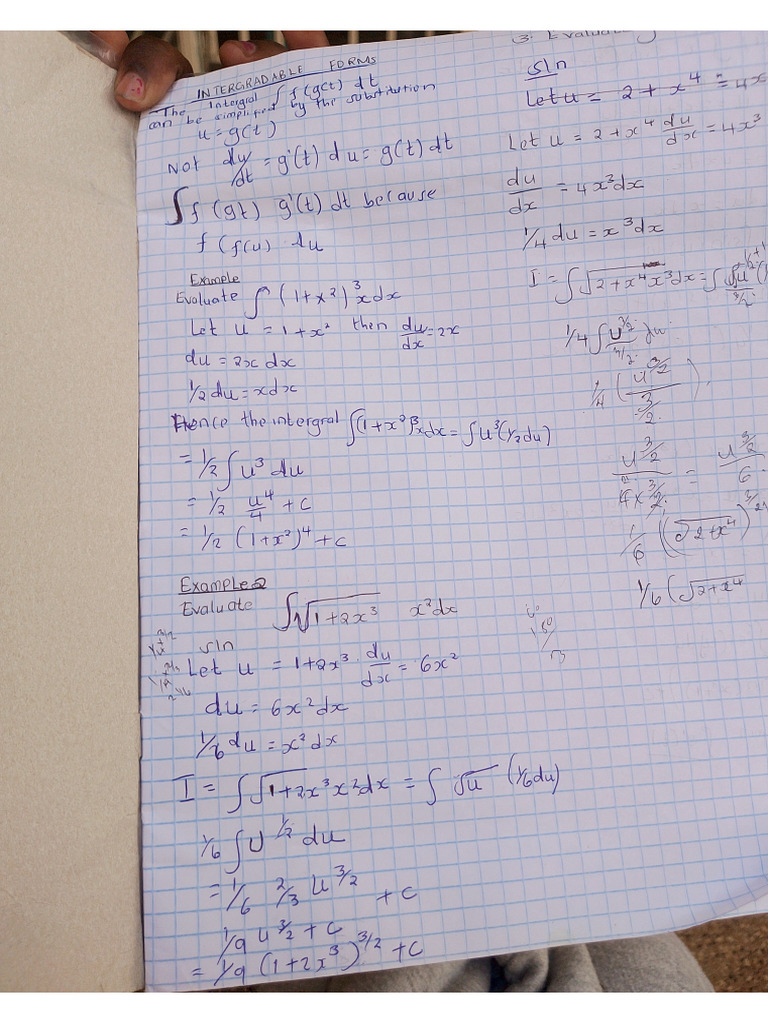 INTERGRADABLE FORMS
The Intergral ∫ f (g(t) dt
can be simplified by the substitution
u = g(t)
Not du/dt = g'(t) du = g(t) dt
∫ f (gt) g'(t) dt because
f (f(u) du
Example
Evaluate ∫ (1+x²)³ x dx
Let u = 1+x² then du/dx = 2x
du = 2x dx
1/2 du = x dx
Hence the intergral ∫(1+x²)³x dx = ∫ u³ (1/2 du)
= 1/2 ∫ u³ du
= 1/2 u⁴/4 + c
= 1/2 (1+x²)⁴ + c
Example 2
Evaluate ∫ √1+2x³ x²dx
sln
Let u = 1+2x³ · du/dx = 6x²
du = 6x² dx
1/6 du = x² dx
I = ∫ √1+2x³ x² dx = ∫ √u (1/6 du)
1/6 ∫ U^1/2 du
= 1/6 2/3 U^3/2 + c
1/9 u^3/2 + c
= 1/9 (1+2x³)^3/2 + c
3. Evaluate
sln
Let u = 2 + x⁴ = 4x
Let u = 2 + x⁴ du/dx = 4x³
du/dx = 4x³dx
1/4 du = x³dx
I = ∫ √2+x⁴ x³dx = ∫
1/4 ∫ U^3/2 / 3/2 du
1/4 ( u^3/2 / 3/2 )
u^3/2 / 4 x 3/2 = u^3/2 / 6
1/6 ((√2+x⁴)^3/2
1/6 (√2+x⁴